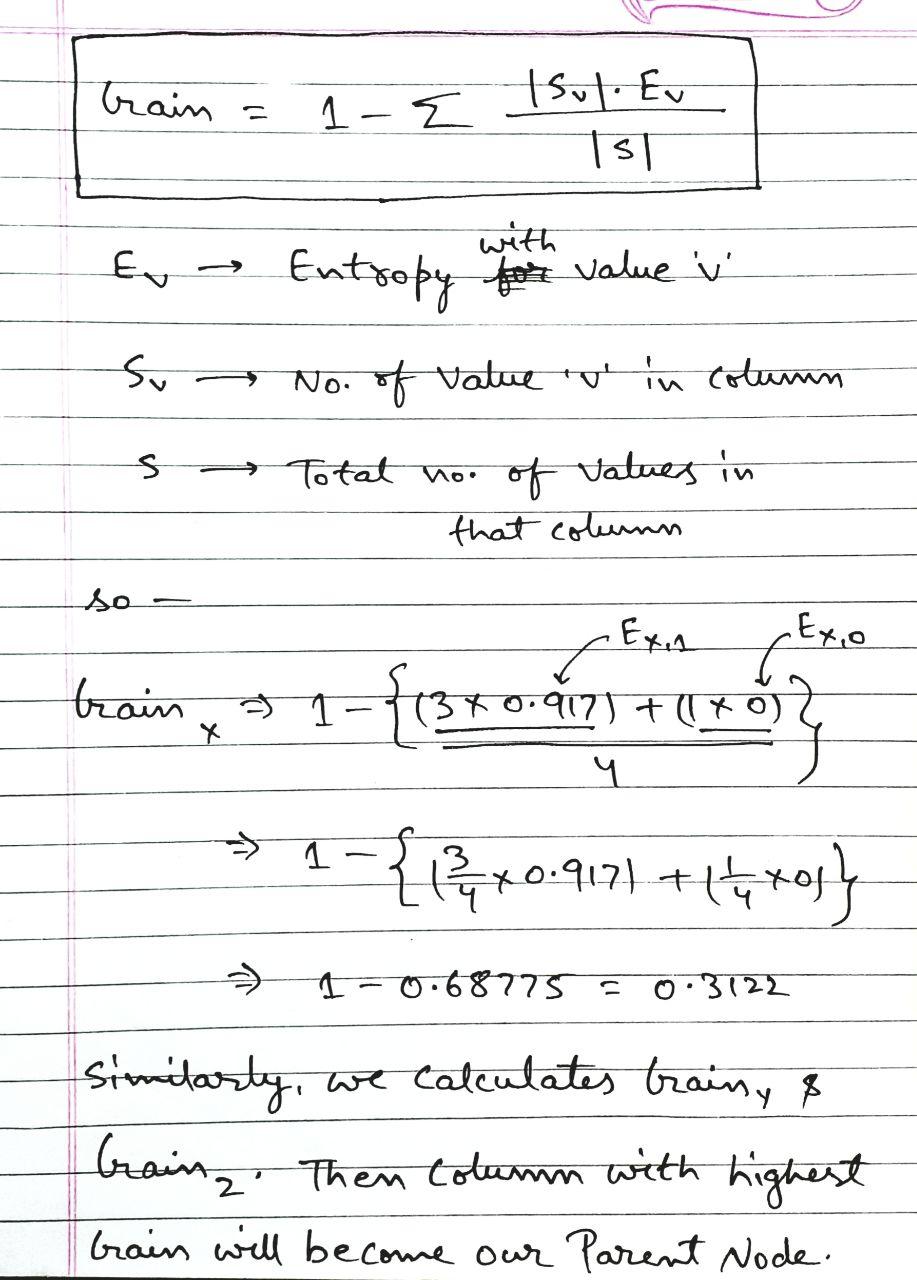 Gain = 1 - Σ |Sv|. Ev / |S|
Ev → Entropy with value 'v'
Sv → No. of value 'v' in column
S → Total no. of values in
that column
so —
Ex,1 Ex,0
Gain x ⇒ 1 - {(3 x 0.917) + (1 x 0)} / 4
⇒ 1 - {(3/4 x 0.917) + (1/4 x 0)}
⇒ 1 - 0.68775 = 0.3122
Similarly, we calculates Gain y &
Gain z. Then column with highest
Gain will become our Parent Node.